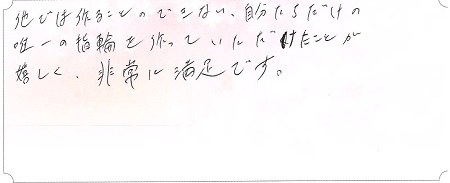 他では作ることのできない、自分たちだけの
唯一の指輪を作っていただけたことが
嬉しく、非常に満足です。